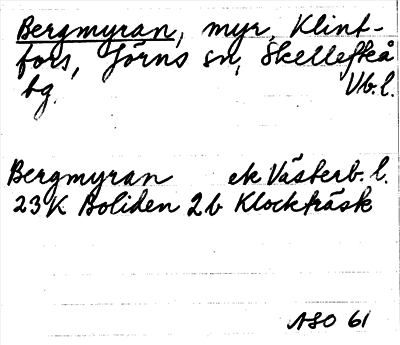 Bergmyran, myr, Klint-
fors, Jörns sn, Skellefteå
tg. Vb.l.
Bergmyran ek Västerb. l.
23K Boliden 2b Klockträsk
ASO 61